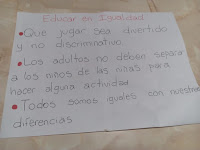 Educar en Igualdad
• Que jugar sea divertido
y no discriminativo.
• Los adultos no deben separar
a los niños de las niñas para
hacer alguna actividad.
• Todos somos iguales con nuestras
diferencias